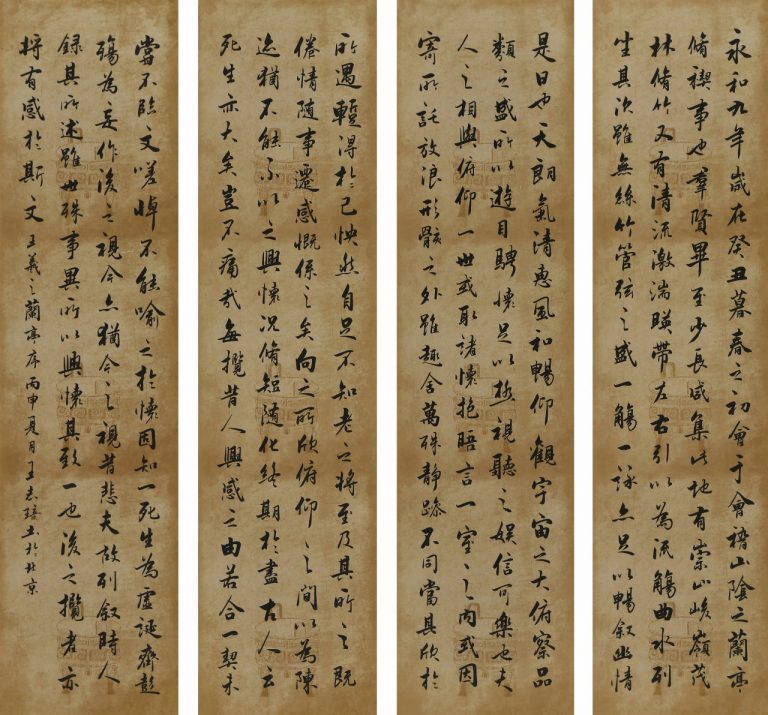 永和九年歲在癸丑暮春之初會于會稽山陰之蘭亭
脩禊事也羣賢畢至少長咸集此地有崇山峻嶺茂
林脩竹又有清流激湍暎帶左右引以為流觴曲水列
坐其次雖無絲竹管弦之盛一觴一詠亦足以暢叙幽情
是日也天朗氣清惠風和暢仰觀宇宙之大俯察品
類之盛所以遊目騁懷足以極視聽之娛信可樂也夫
人之相與俯仰一世或取諸懷抱晤言一室之內或因
寄所託放浪形骸之外雖趣舍萬殊靜躁不同當其欣於
所遇蹔得於己怏然自足不知老之將至及其所之既
倦情隨事遷感慨係之矣向之所欣俯仰之間以為陳
迹猶不能不以之興懷況脩短隨化終期於盡古人云
死生亦大矣豈不痛哉每攬昔人興感之由若合一契未
嘗不臨文嗟悼不能喻之於懷固知一死生為虛誕齊彭
殤為妄作後之視今亦猶今之視昔悲夫故列叙時人
錄其所述雖世殊事異所以興懷其致一也後之攬者亦
將有感於斯文 王羲之蘭亭序丙申夏月王志書於北京